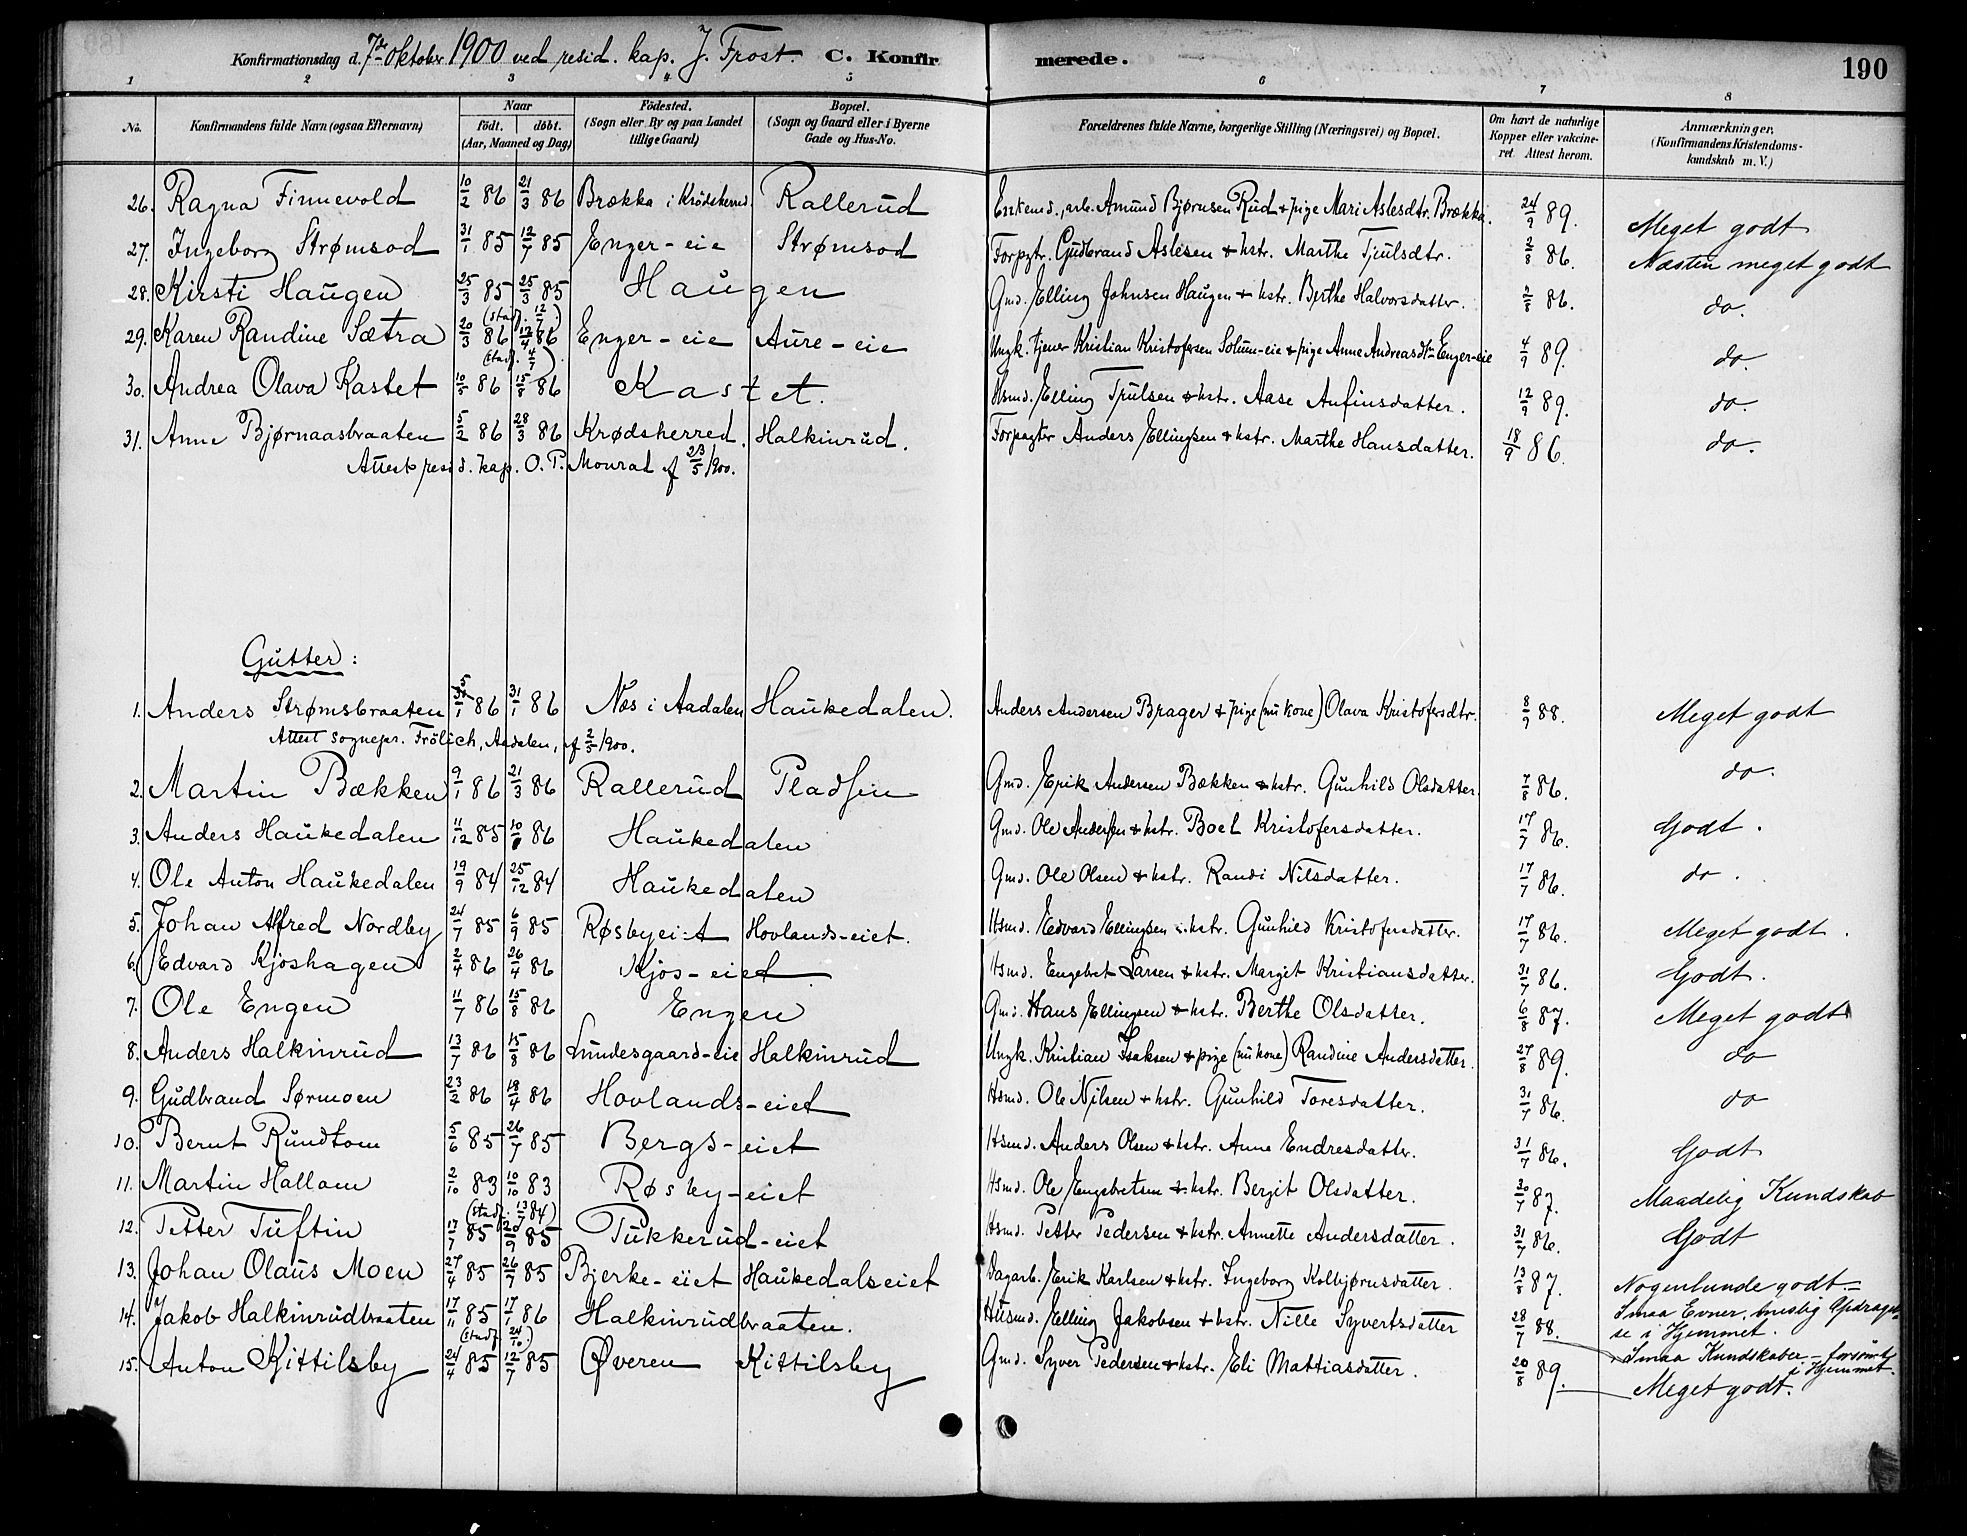 Konfirmationsdag d. 7de Oktober 1900 ved resid. kap. J. Frost. C. Konfirmerede. 190
1 2 3 4 5 6 7 8
No. Konfirmandens fulde Navn (ogsaa Efternavn) Naar født. | døbt. (Aar, Maaned og Dag) Födested. (Sogn eller By og paa Landet tillige Gaard) Bopæl. (Sogn og Gaard eller i Byerne Gade og Hus-No. Forældrenes fulde Navne, borgerlige Stilling (Næringsvei) og Bopæl. Om havt de naturlige Kopper eller vakcineret. Attest herom. Anmærkninger. (Konfirmandens Kristendomskundskab m. V.)
26. Ragna Finnevold 10/2 86 21/3 86 Brækka i Krödsherred Rallerud Enkemd., arb. Amund Bjørnsen Rud & pige Mari Aslesdtr. Brække. 24/9 89. Meget godt
27. Ingeborg Strømsod 31/1 85 12/7 85 Enger-eie Strømsod Forpgtr. Gudbrand Aslesen & hstr. Marthe Tjulsdtr. 2/8 86. Næsten meget godt
28. Kirsti Haugen 25/3 85 25/3 85 Haugen Gmd. Elling Johnsen Haugen & hstr. Berthe Halvorsdatter. 2/8 86. do.
(stadf. 12/7)
29. Karen Randine Sætra 20/3 86 12/4 86 Enger-eie Aure-eie Ungk. tjener Kristian Kristofersen Solum-eie & pige Anne Andreasdtr Enger-eie 4/9 89. do.
(stadf. 4/7).
30. Andrea Olava Kastet 10/5 86 15/8 86 Kastet. Hsmd. Elling Trulsen & hstr. Aase Anfinsdatter. 12/9 89. do.
31. Anne Bjørnaasbraaten 5/2 86 28/3 86 Krødsherred. Halkinrud. Forpagter Anders Ellingsen & hstr. Marthe Hansdatter. 18/9 86. do.
Attest resid. kap. O. P. Monrad af 23/5 1900.
Gutter:
1. Anders Strømsbraaten 5/1 86 31/1 86 Næs i Aadalen Haukedalen. Anders Andersen Brager & pige (nu kone) Olava Kristofersdtr. 8/9 88. Meget godt
Attest sognepr. Frölich, Aadalen, af 2/5 1900.
2. Martin Bækken 9/1 86 21/3 86 Rallerud Pladsen Gmd. Erik Andersen Bækken & hstr. Gunhild Olsdatter. 7/8 86. do.
3. Anders Haukedalen 11/12 85 10/ 86 Haukedalen Gmd. Ole Andersen & hstr. Boel Kristofersdatter. 17/7 86. Godt.
4. Ole Anton Haukedalen 19/9 84 25/12 84 Haukedalen Gmd. Ole Olsen & hstr. Randi Nilsdatter. 17/7 86. do.
5. Johan Alfred Nordby 24/7 85 6/9 85 Røsbyeiet Hovlands-eiet. Hsmd. Edvard Ellingsen & hstr. Gunhild Kristofersdatter. 17/7 86. Meget godt.
6. Edvard Kjøshagen 2/4 86 26/4 86 Kjøs-eiet Hsmd. Engebret Larsen & hstr. Margit Kristiansdatter. 31/7 86. Godt.
7. Ole Engen 11/7 86 15/8 86 Engen Gmd. Hans Ellingsen & hstr. Berthe Olsdatter. 6/8 87. Meget godt
8. Anders Halkinrud 13/7 86 15/8 86 Lundesgaard-eie Halkinrud Ungk. Kristian Isaksen & pige (nu kone) Randine Andersdatter. 27/8 89. do
9. Gudbrand Sørmoen 23/2 86 18/4 86 Hovlands-eiet Hsmd. Ole Nilsen & hstr. Gunhild Toresdatter. 31/7 86. do
10. Bernt Rundtom 5/6 85 26/7 85 Bergs-eiet Hsmd. Anders Olsen & hstr. Anne Endresdatter. 31/7 86. Godt
11. Martin Hallom 2/10 83 10/10 83 Røsby-eiet Hsmd. Ole Engebretsen & hstr. Bergit Olsdatter. 30/7 87. Maadelig Kundskab
(stadf. 13/7 84)
12. Petter Tuftin 17/7 85 20/9 85 Tukkerud-eiet Hsmd. Petter Pedersen & hstr. Annette Andersdatter. 31/7 86. Godt
13. Johan Olaus Moen 27/4 85 26/7 85 Bjerke-eiet Haukedalseiet Dagarb. Erik Karlsen & hstr. Ingeborg Kolbjørnsdatter. 13/8 87. Nogenlunde godt.
14. Jakob Halkinrudbraaten 17/11 85 17/1 86 Halkinrudbraaten. Husmd. Elling Jakobsen & hstr. Nille Syvertsdatter 28/7 88. Smaa Evner, Opdragelse i Hjemmet.
(stadf. 24/10)
Smaa Kundskaber – forsømt i Hjemmet.
15. Anton Kittilsby 24/4 85 12/7 85 Øveren Kittilsby Gmd. Syver Pedersen & hstr. Eli Mattiasdatter. 20/8 89. Meget godt.